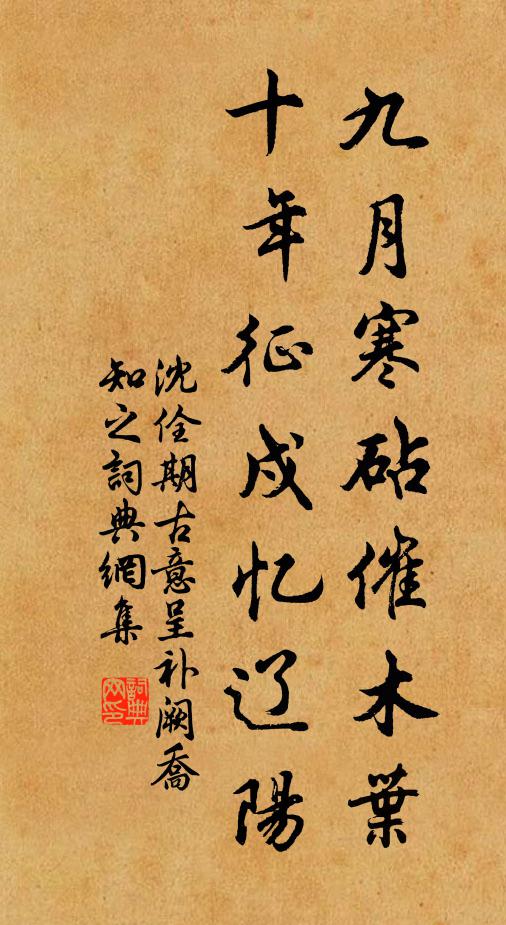 九月寒砧催木葉
十年征戍忆辽陽
沈佺期古意呈补阙喬
知之詞典網集
詞典
网印